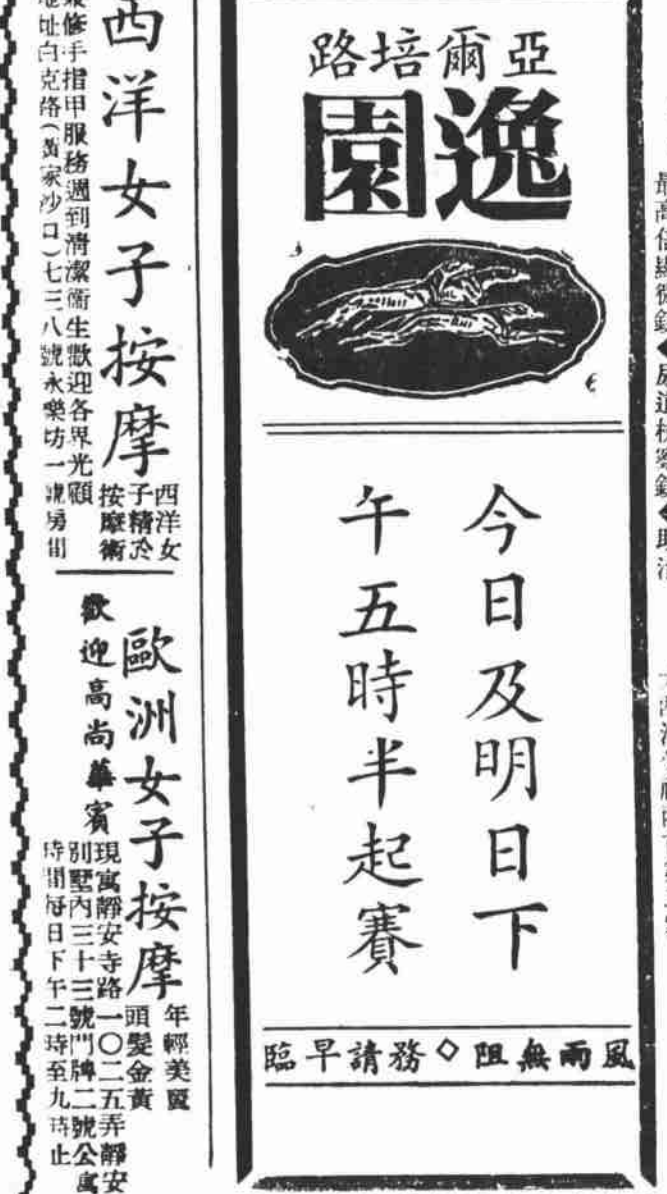 亞爾培路
逸園
今日及明日下
午五時半起賽
風雨無阻◇務請早臨
西洋女子按摩
西洋女
子精於
按摩術
修手指甲服務週到清潔衛生歡迎各界光顧
地址白克路(黃家沙口)七三八號永樂坊一號房間
歐洲女子按摩
年輕美麗
頭髮金黃
歡迎高尚華賓
現寓靜安寺路一〇二五弄靜安
別墅內三十三號門牌二號公寓
時間每日下午二時至九時止
最高倍顯微鏡◆